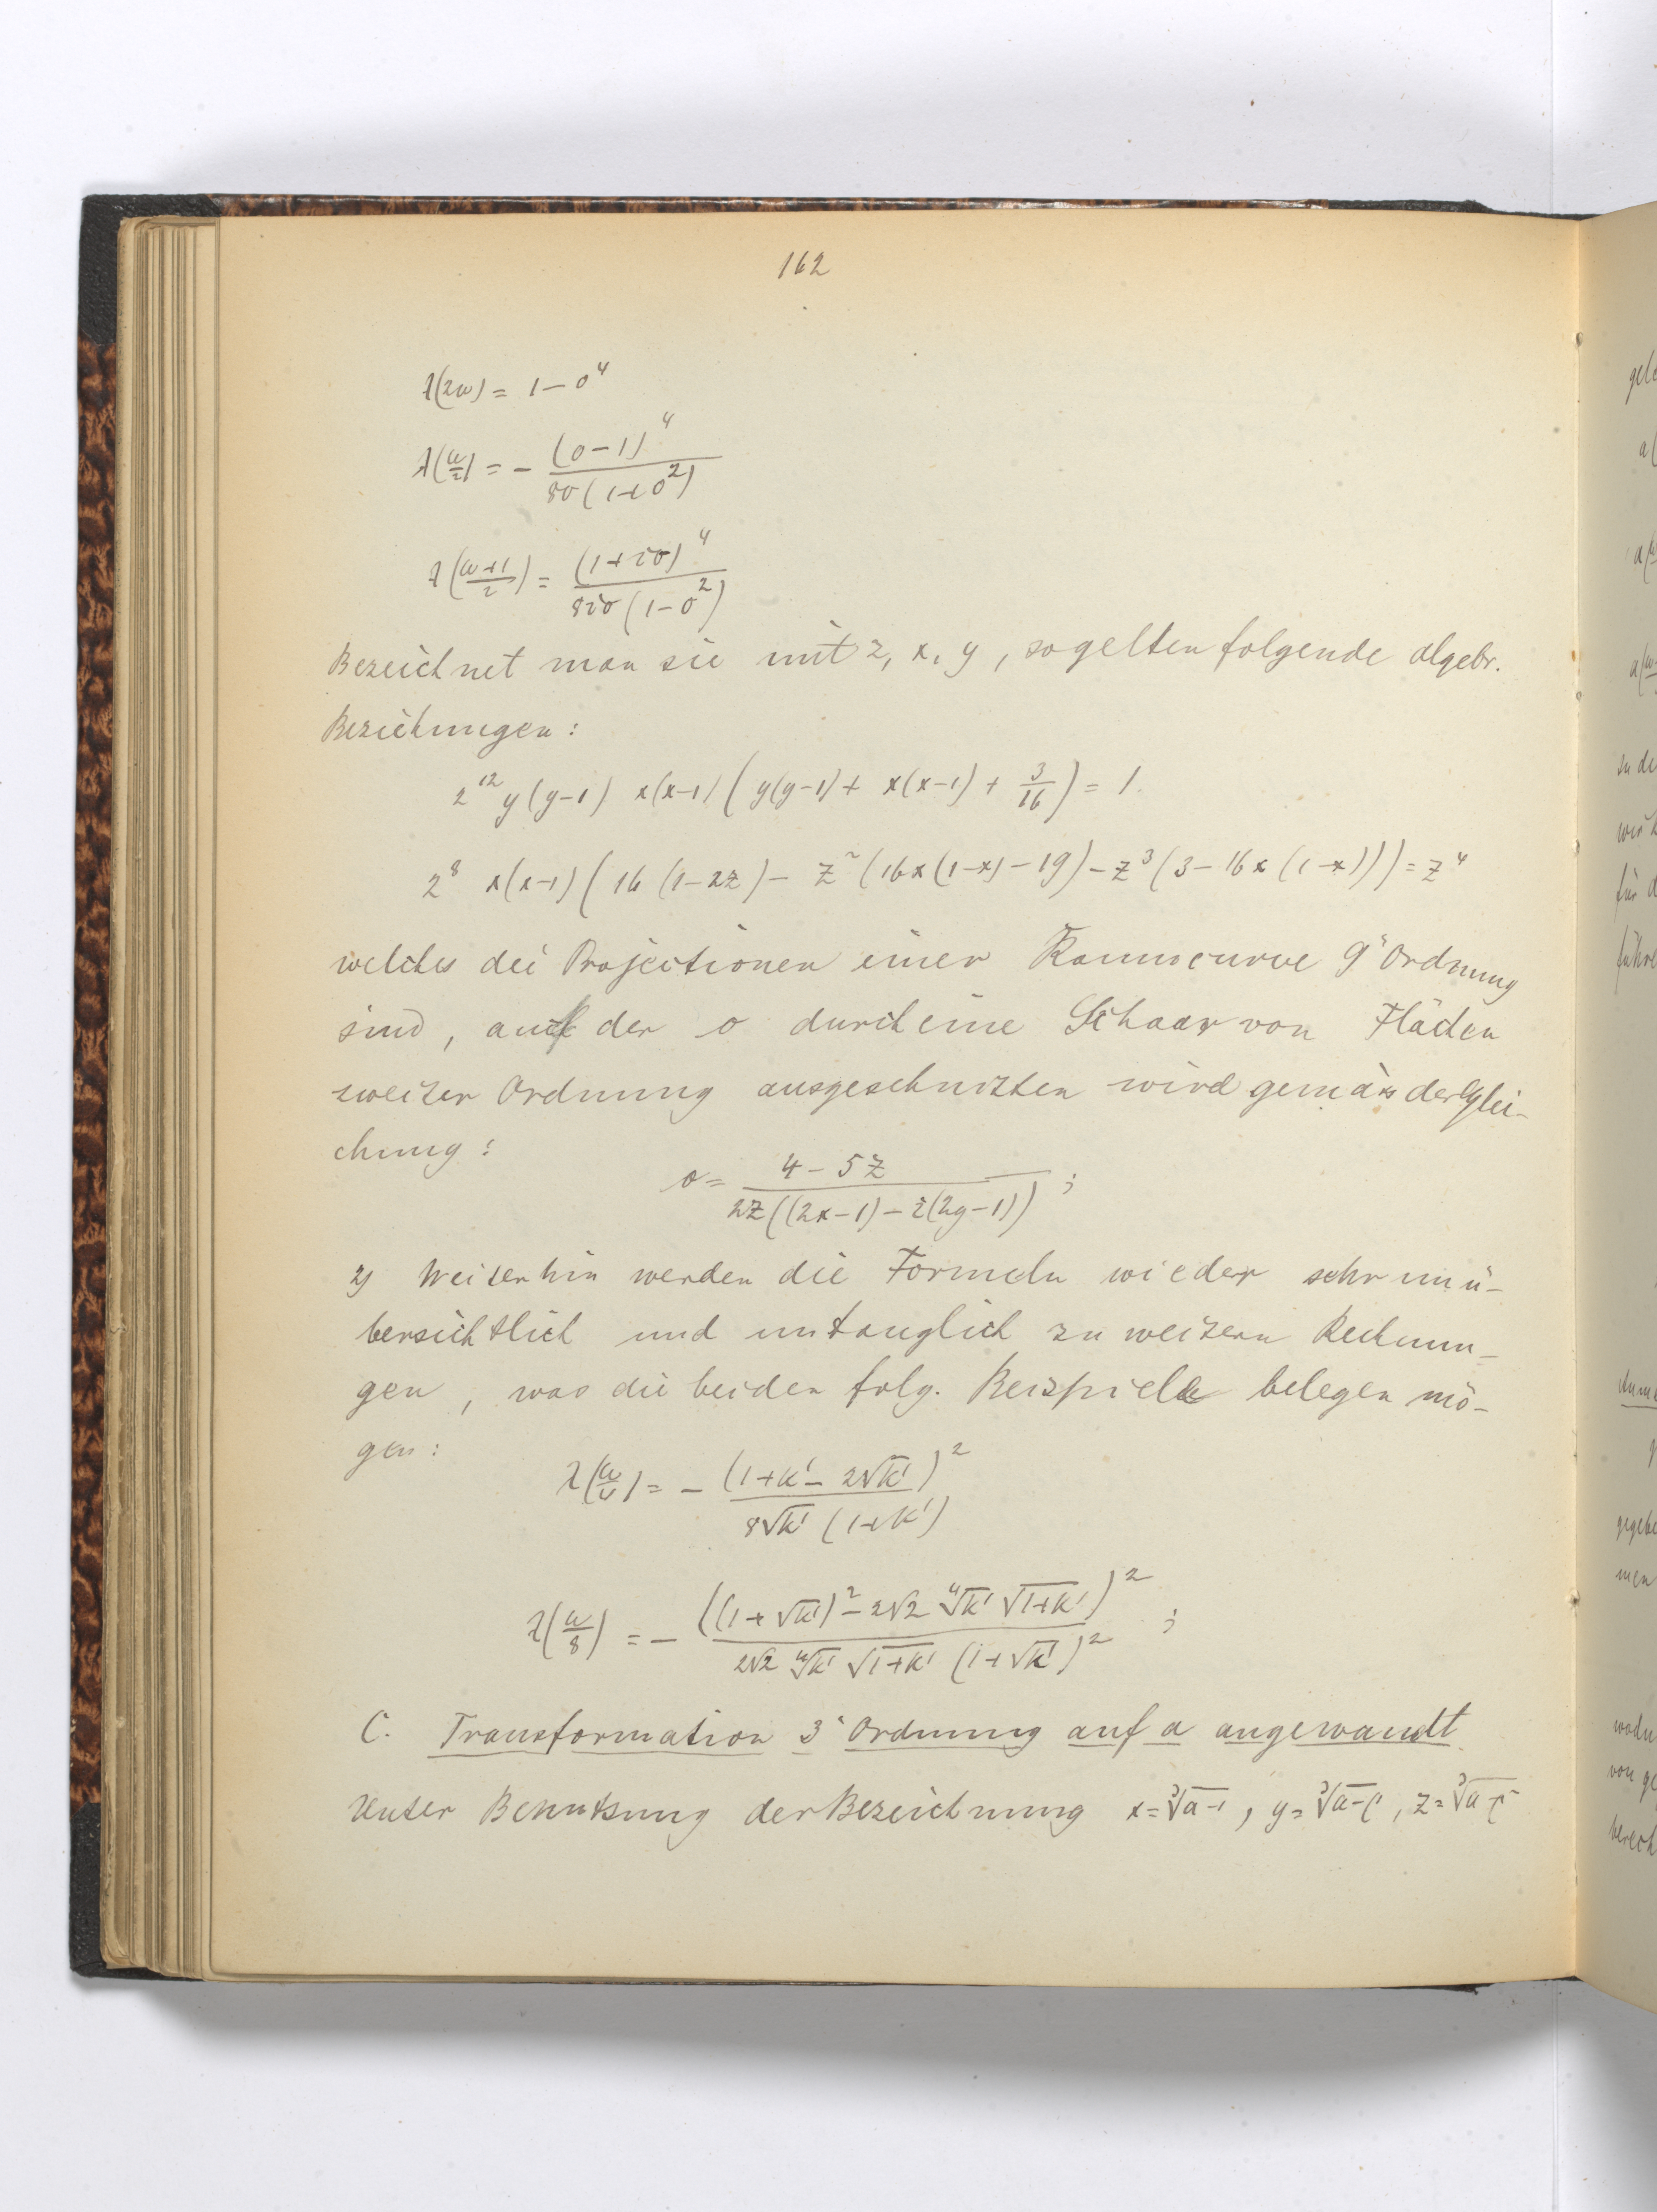 162
λ(2ω) = 1 − σ⁴
λ(ω/2) = − (σ−1)⁴ / 8σ(1+σ²)
λ((ω+1)/2) = (1+iσ)⁴ / 8iσ(1−σ²)
Bezeichnet man sie mit z, x, y, so gelten folgende algebr.
Beziehungen:
2¹² y(y−1) x(x−1) (y(y−1) + x(x−1) + 3/16) = 1.
2⁸ x(x−1) (16(1−2z) − z²(16x(1−x) − 19) − z³(3 − 16x(1−x))) = z⁴
welches die Projectionen einer Raumcurve 9ʳ Ordnung
sind, auf der σ durch eine Schaar von Flächen
zweiter Ordnung ausgeschnitten wird gemäss der Glei-
chung:
σ = (4 − 5z) / 2z((2x−1) − i(2y−1)) ;
2) Weiterhin werden die Formeln wieder sehr unü-
bersichtlich und untauglich zu weitern Rechnun-
gen, was die beiden folg. Beispiele belegen mö-
gen:
λ(ω/4) = − (1+k' − 2√k')² / 8√k' (1+k')
λ(ω/8) = − ((1+√k')² − 2√2 ⁴√k' √(1+k'))² / 2√2 ⁴√k' √(1+k') (1+√k')² ;
C. Transformation 3ʳ Ordnung auf a angewandt.
Unter Benutzung der Bezeichnung x = ³√(a−1), y = ³√(a−ρ), z = ³√(a−ρ²)